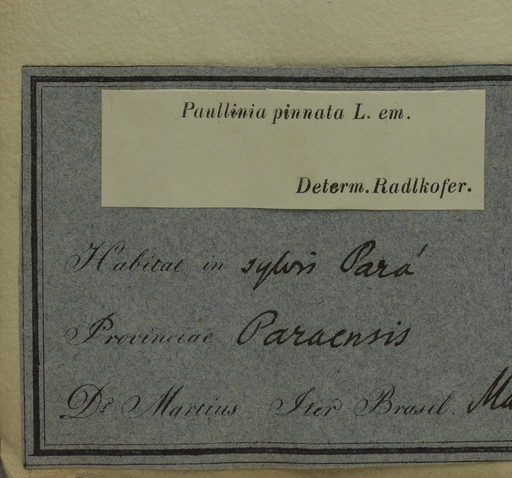 Paullinia pinnata L. em.
Determ. Radlkofer.
Habitat in sylvis Pará
Provinciae Paraensis
Dr Martius Iter Brasil.